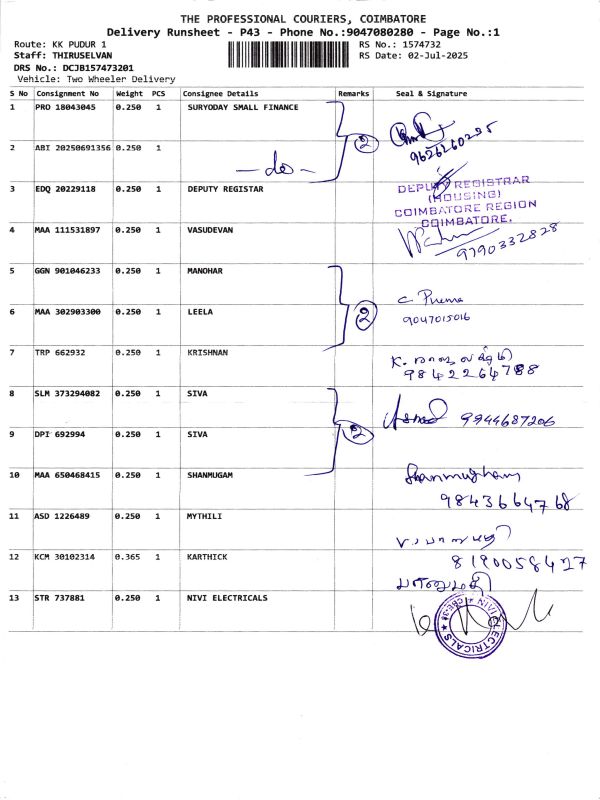 THE PROFESSIONAL COURIERS, COIMBATORE
Delivery Runsheet - P43 - Phone No.:9047080280 - Page No.:1
Route: KK PUDUR 1 RS No.: 1574732
Staff: THIRUSELVAN RS Date: 02-Jul-2025
DRS No.: DCJB157473201
Vehicle: Two Wheeler Delivery
S No Consignment No Weight PCS Consignee Details Remarks Seal & Signature
1 PRO 18043045 0.250 1 SURYODAY SMALL FINANCE
2 9626260295
2 ABI 20250691356 0.250 1
—do—
3 EDQ 20229118 0.250 1 DEPUTY REGISTAR
DEPUTY REGISTRAR
(HOUSING)
COIMBATORE REGION
COIMBATORE.
4 MAA 111531897 0.250 1 VASUDEVAN
9790332828
5 GGN 901046233 0.250 1 MANOHAR
2 C. Prema
6 MAA 302903300 0.250 1 LEELA 9047015016
7 TRP 662932 0.250 1 KRISHNAN
9842264788
8 SLM 373294082 0.250 1 SIVA
9944687206
9 DPI 692994 0.250 1 SIVA 2
10 MAA 650468415 0.250 1 SHANMUGAM Shanmugham
9843664768
11 ASD 1226489 0.250 1 MYTHILI
12 KCM 30102314 0.365 1 KARTHICK 8190058427
13 STR 737881 0.250 1 NIVI ELECTRICALS
ELECTRICALS